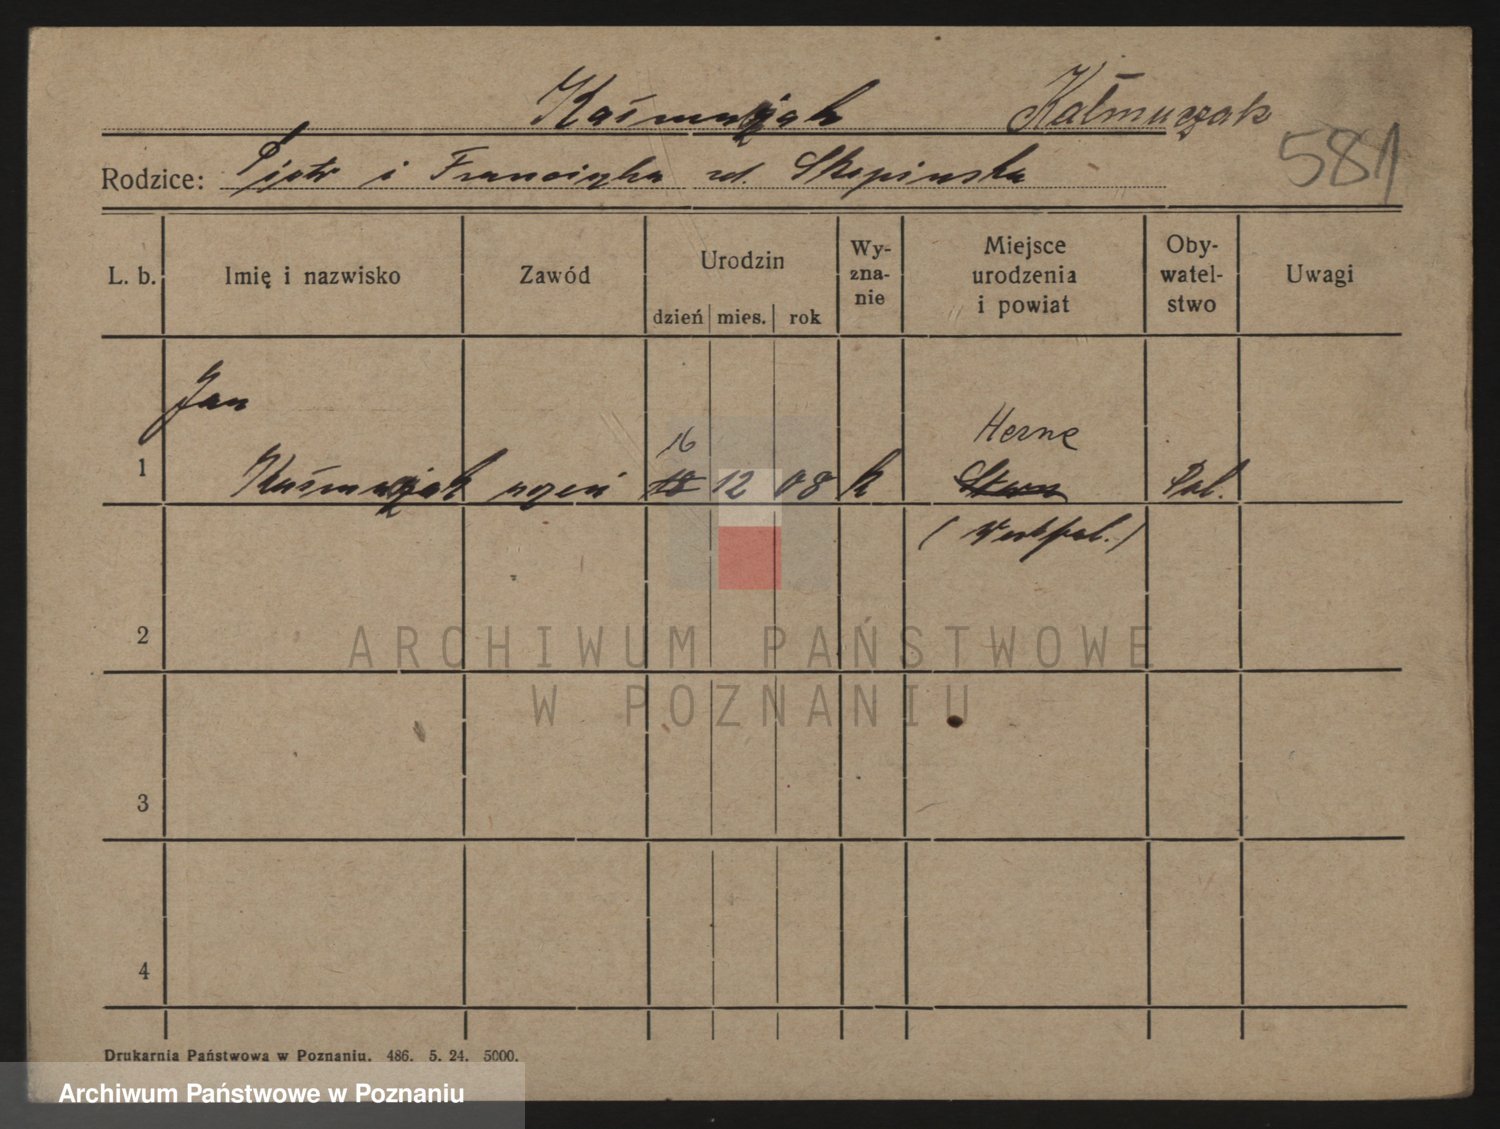 Kaźmierczak Kałmuczak
Rodzice: Piotr i Franciszka zd. Skopinska
581
L. b. Imię i nazwisko Zawód Urodzin dzień mies. rok Wy-znanie Miejsce urodzenia i powiat Oby-watel-stwo Uwagi
Jan
16 Herne
1 uczeń 18 12 08 k Pol.
(Westpol.)
2
ARCHIWUM PAŃSTWOWE
W POZNANIU
3
4
Drukarnia Państwowa w Poznaniu. 486. 5. 24. 5000.
Archiwum Państwowe w Poznaniu